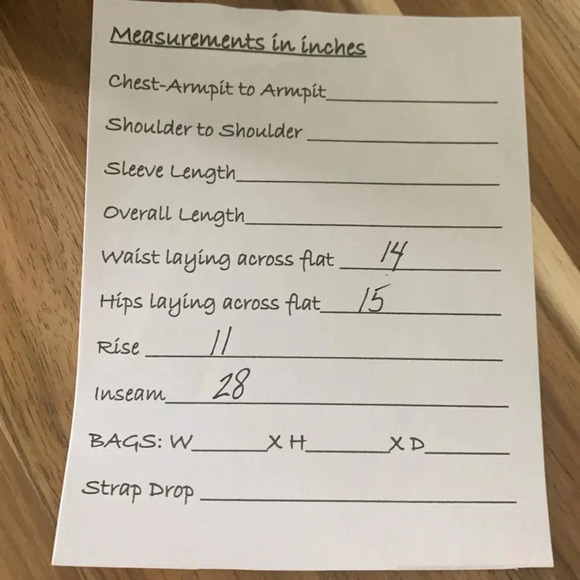 Measurements in inches
Chest-Armpit to Armpit
Shoulder to Shoulder
Sleeve Length
Overall Length
Waist laying across flat 14
Hips laying across flat 15
Rise 11
Inseam 28
BAGS: W______X H______X D______
Strap Drop